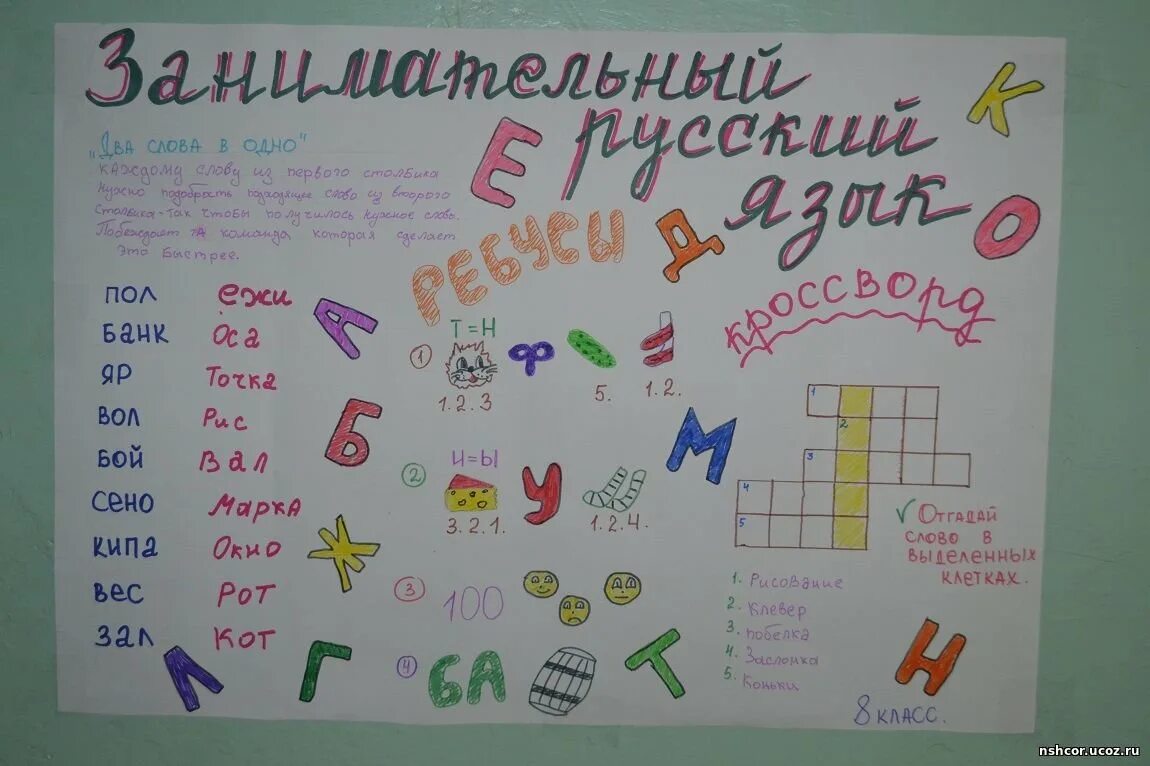 Занимательный
русский
язык
"Два слова в одно"
Каждому слову из первого столбика
нужно подобрасть подходящее слово из второго
столбика-так чтобы получилось нужное слово.
Побеждает та команда которая сделает
это быстрее.
пол ежи
банк Оса
яр Точка
вол Рис
бой Вал
сено Марка
кипа Окно
вес Рот
зал Кот
Е
Д
К
О
А
Б
Ж
Л
Г
Т
М
Н
РЕБУСЫ
Т=Н
1 Ф
1.2.3 5. 1.2.
И=Ы
2 У
3.2.1. 1.2.4.
3 100
4 БА
кроссворд
1
2
3
4
5
✓ Отгадай
слово в
выделенных
клетках.
1. Рисование
2. Клевер
3. побелка
4. Заслонка
5. Коньки
8 класс.
nshcor.ucoz.ru